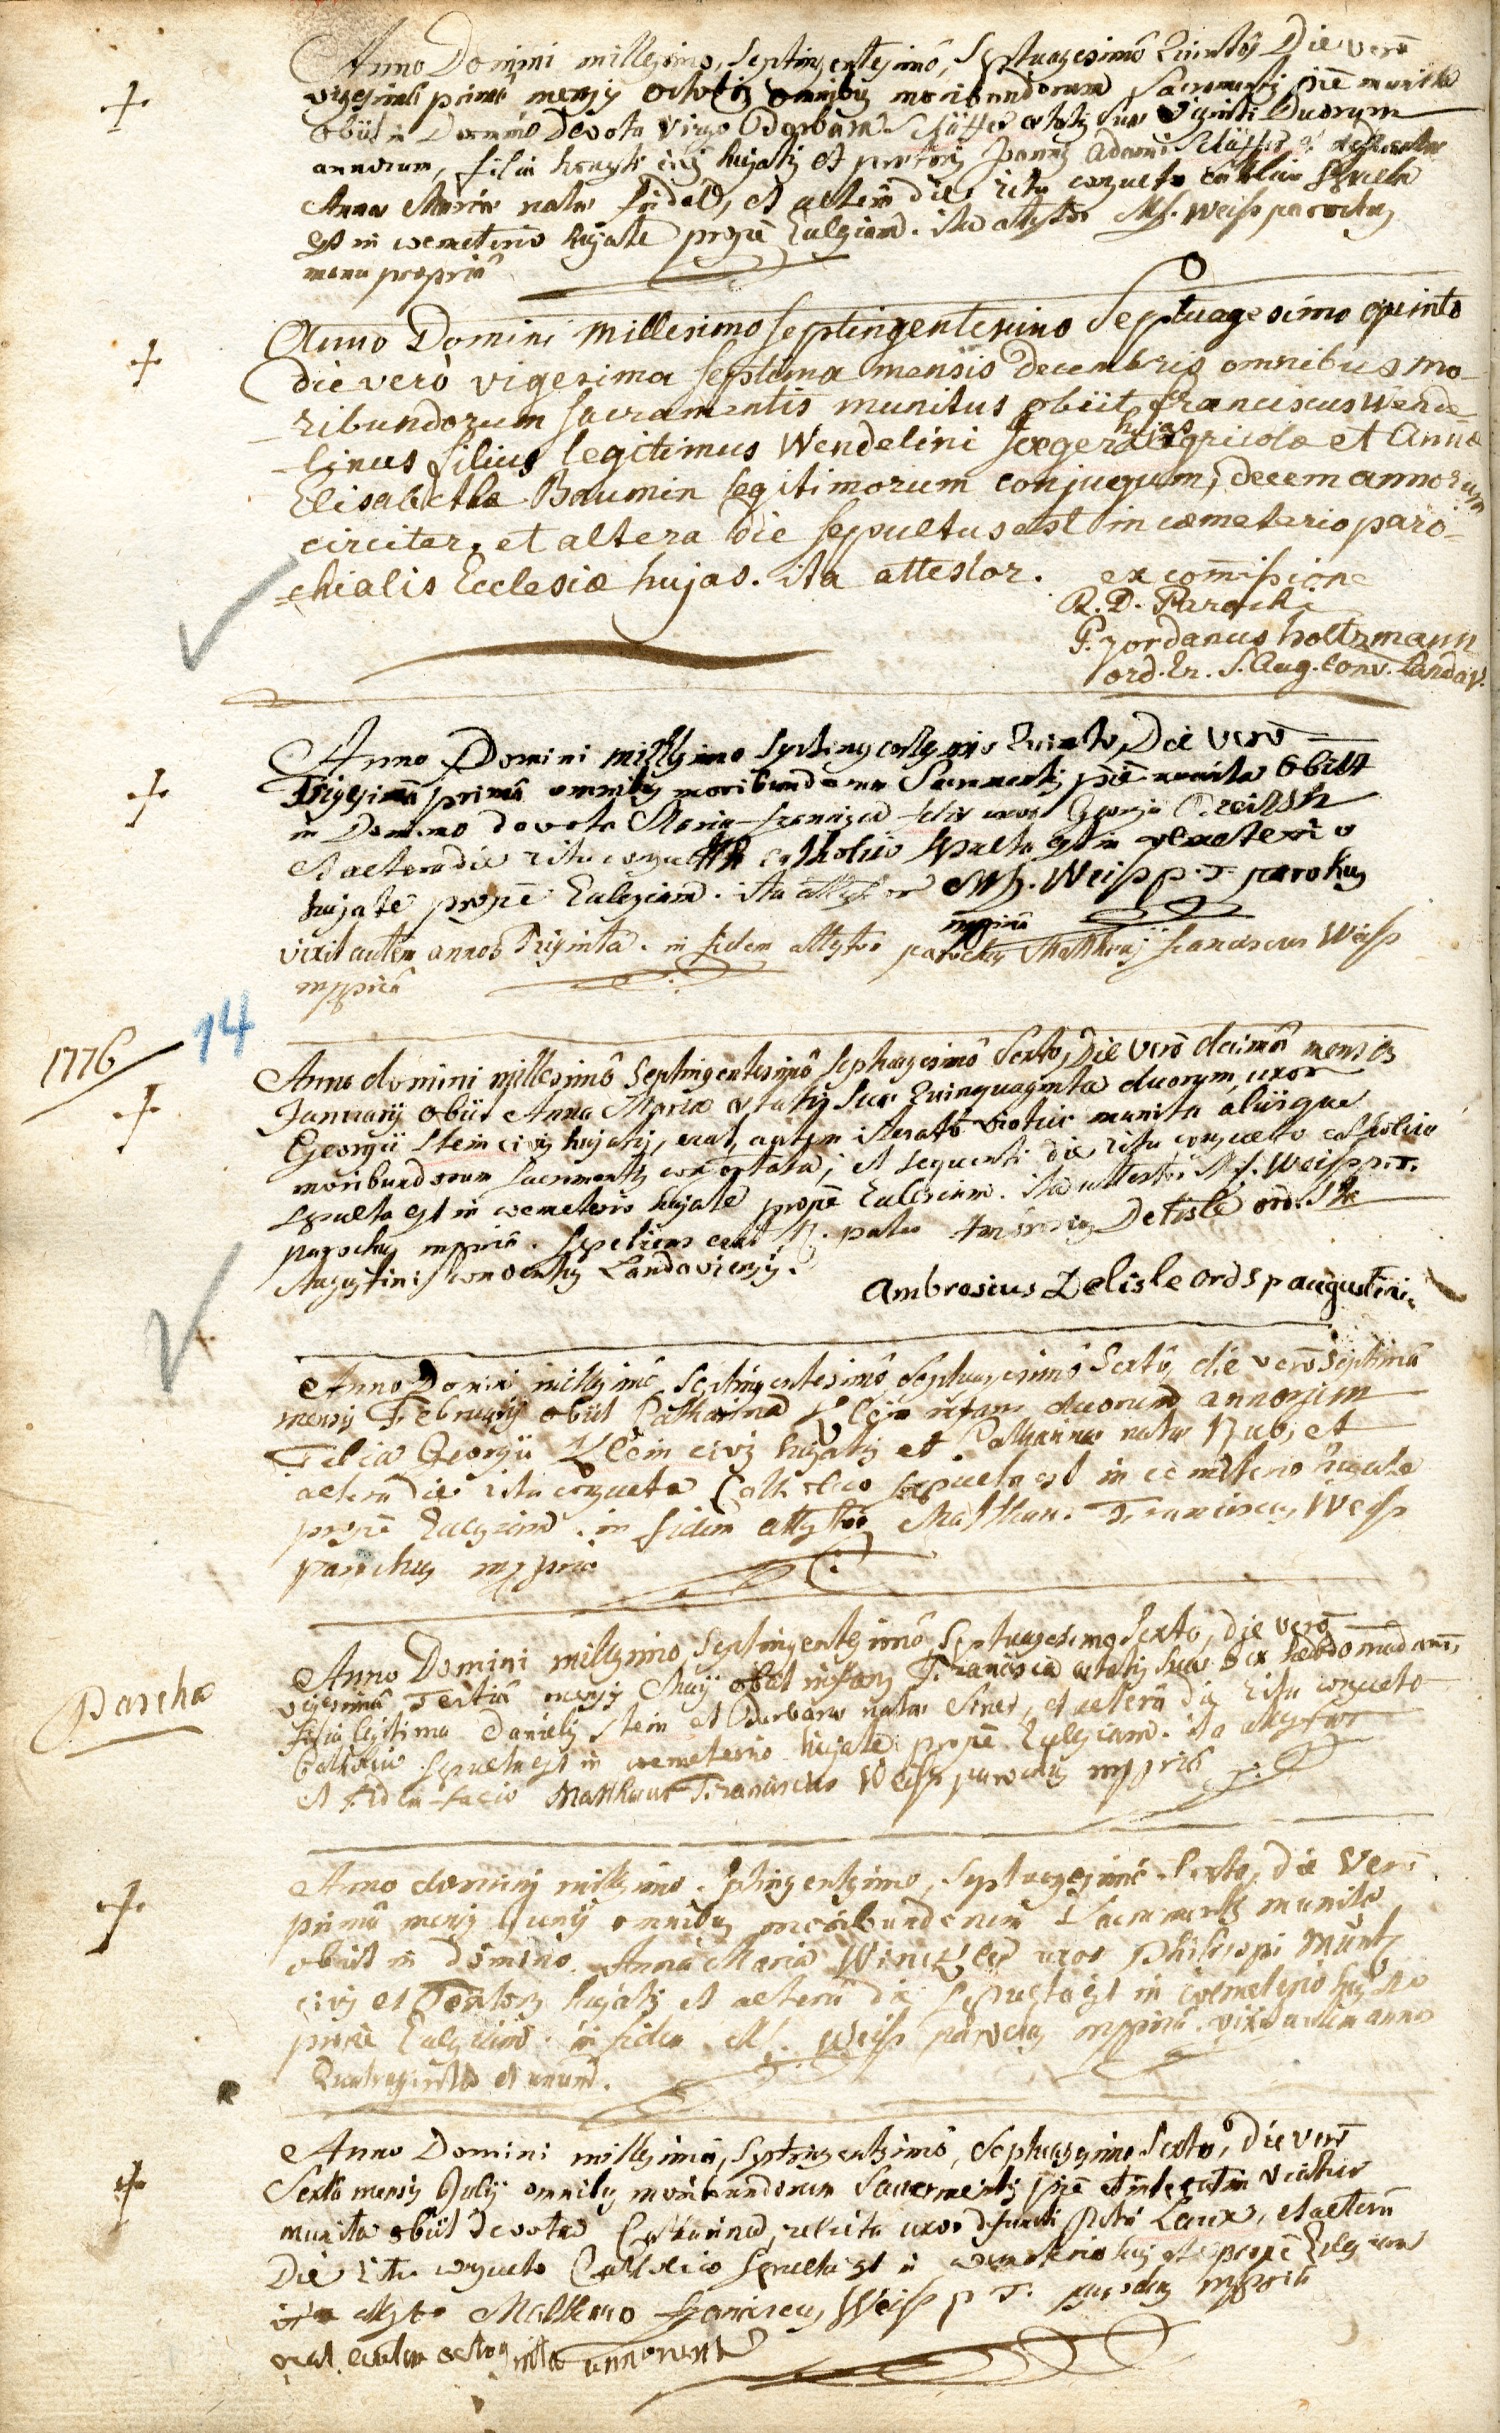 Anno Domini millesimo, septingentesimô, septuagesimô Quintô Die verô
vigesimâ primâ mensis octobris omnibus moribundorum Sacramentis piè munita
obiit in Domino Devota Virgo Barbara Schäffer ætatis suæ viginti Duorum
annorum, filia honesti civis hujatis et prætoris Joannis Adami Schäffer et
Annæ Mariæ natæ et alterâ die ritu consueto catholico sepulta
est in coemeterio hujate propè Ecclesiam. ita attestor Mf. Weiss parochus
manu propriâ
Anno Domini Millesimo septingentesimo Septuagesimo quinto
die verò vigesima septima mensis decembris omnibus mo-
ribundorum sacramentis munitus obiit franciscus wende-
linus filius legitimus Wendelini Jæger hujas agricolæ et Annæ
Elisabethæ Baumin legitimorum conjugum, decem annorum
circiter, et altera die sepultus est in cæmeterio paro-
chialis Ecclesiæ hujas. ita attestor. ex commissione
R. D. Parochi
P. Jordanus holtzmann
ord. Er. S. Aug. Conv. Landav.
Anno Domini millesimo septingentesimo Quinto, Die verô
Trigesimâ primâ omnibus moribundorum Sacramentis piè munita obiit
in Domino devota Maria Francisca uxor Georgii
et altera die ritu consueto catholico sepulta est in cæmeterio
hujate propè Ecclesiam. ita attestor Mf. Weiss p. T. parochus
mppriâ
vixit autem annos Triginta. in fidem attestor parochus Matthæus franciscus Weiss
mppriâ
1776
14
Anno domini millesimô septingentesimô septuagesimô sexto, Die verô decimâ mensis
Januarii obiit Anna Maria ætatis suæ Quinquaginta duorum, uxor
Georgii Stein civis hujatis, erat autem iteratô viatico munita aliisque
moribundorum sacramentis confortata; et sequenti die ritu consueto catholico
sepulta est in coemeterio hujate propè Ecclesiam. ita attestor Mf. Weiss p. T.
parochus mppriâ. sepeliens erat R. pater Ambrosius Delisle ord. Sti
Augustini conventus Landaviensis.
Ambrosius Delisle ord S p augustini
Anno Domini millesimô septingentesimô septuagesimô sextô, die verô septimâ
mensis Februarii obiit Catharina Klein infans duorum annorum
Filia Georgii Klein civis hujatis et Catharinæ natæ Hub, et
alterâ die ritu consueto Catholico sepulta est in cemeterio hujate
propè Ecclesiam. in fidem attestor Matthæus Franciscus Weiss
parochus mppriâ
Pascha
Anno Domini millesimo, septingentesimô, septuagesimo sexto, die verô
vigesimâ Tertiâ mensis Maij obiit infans Francisca ætatis suæ sex hebdomadarum,
filia legitima Danielis Stein et Barbaræ natæ, et alterâ die ritu consueto
Catholico sepulta est in coemeterio hujate propè Ecclesiam. ita attestor
et fidem facio Matthæus Franciscus Weiss parochus mppriâ
Anno domini millesimo septingentesimo, septuagesimô sexto, die verô
primâ mensis Junij omnibus moribundorum Sacramentis munita
obiit in Domino Anna Maria Winckler uxor Philippi Müntz
civis et hujatis et alterâ die sepulta est in coemeterio hujate
propè Ecclesiam. in fidem Mf. Weiss parochus mppriâ. vixit autem annos
Quadraginta et unum.
Anno Domini millesimô, septingentesimô, septuagesimo sexto, die verô
Sextâ mensis Julij omnibus moribundorum Sacramentis piè et iterato viatico
munita obiit devota Catharina, relicta uxor defuncti Petri Laux, et alterâ
Die ritu consueto Catholico sepulta est in coemeterio hujate propè Ecclesiam
ita attestor Matthæus Franciscus Weiss p T. parochus mppriâ
erat autem octoginta annorum